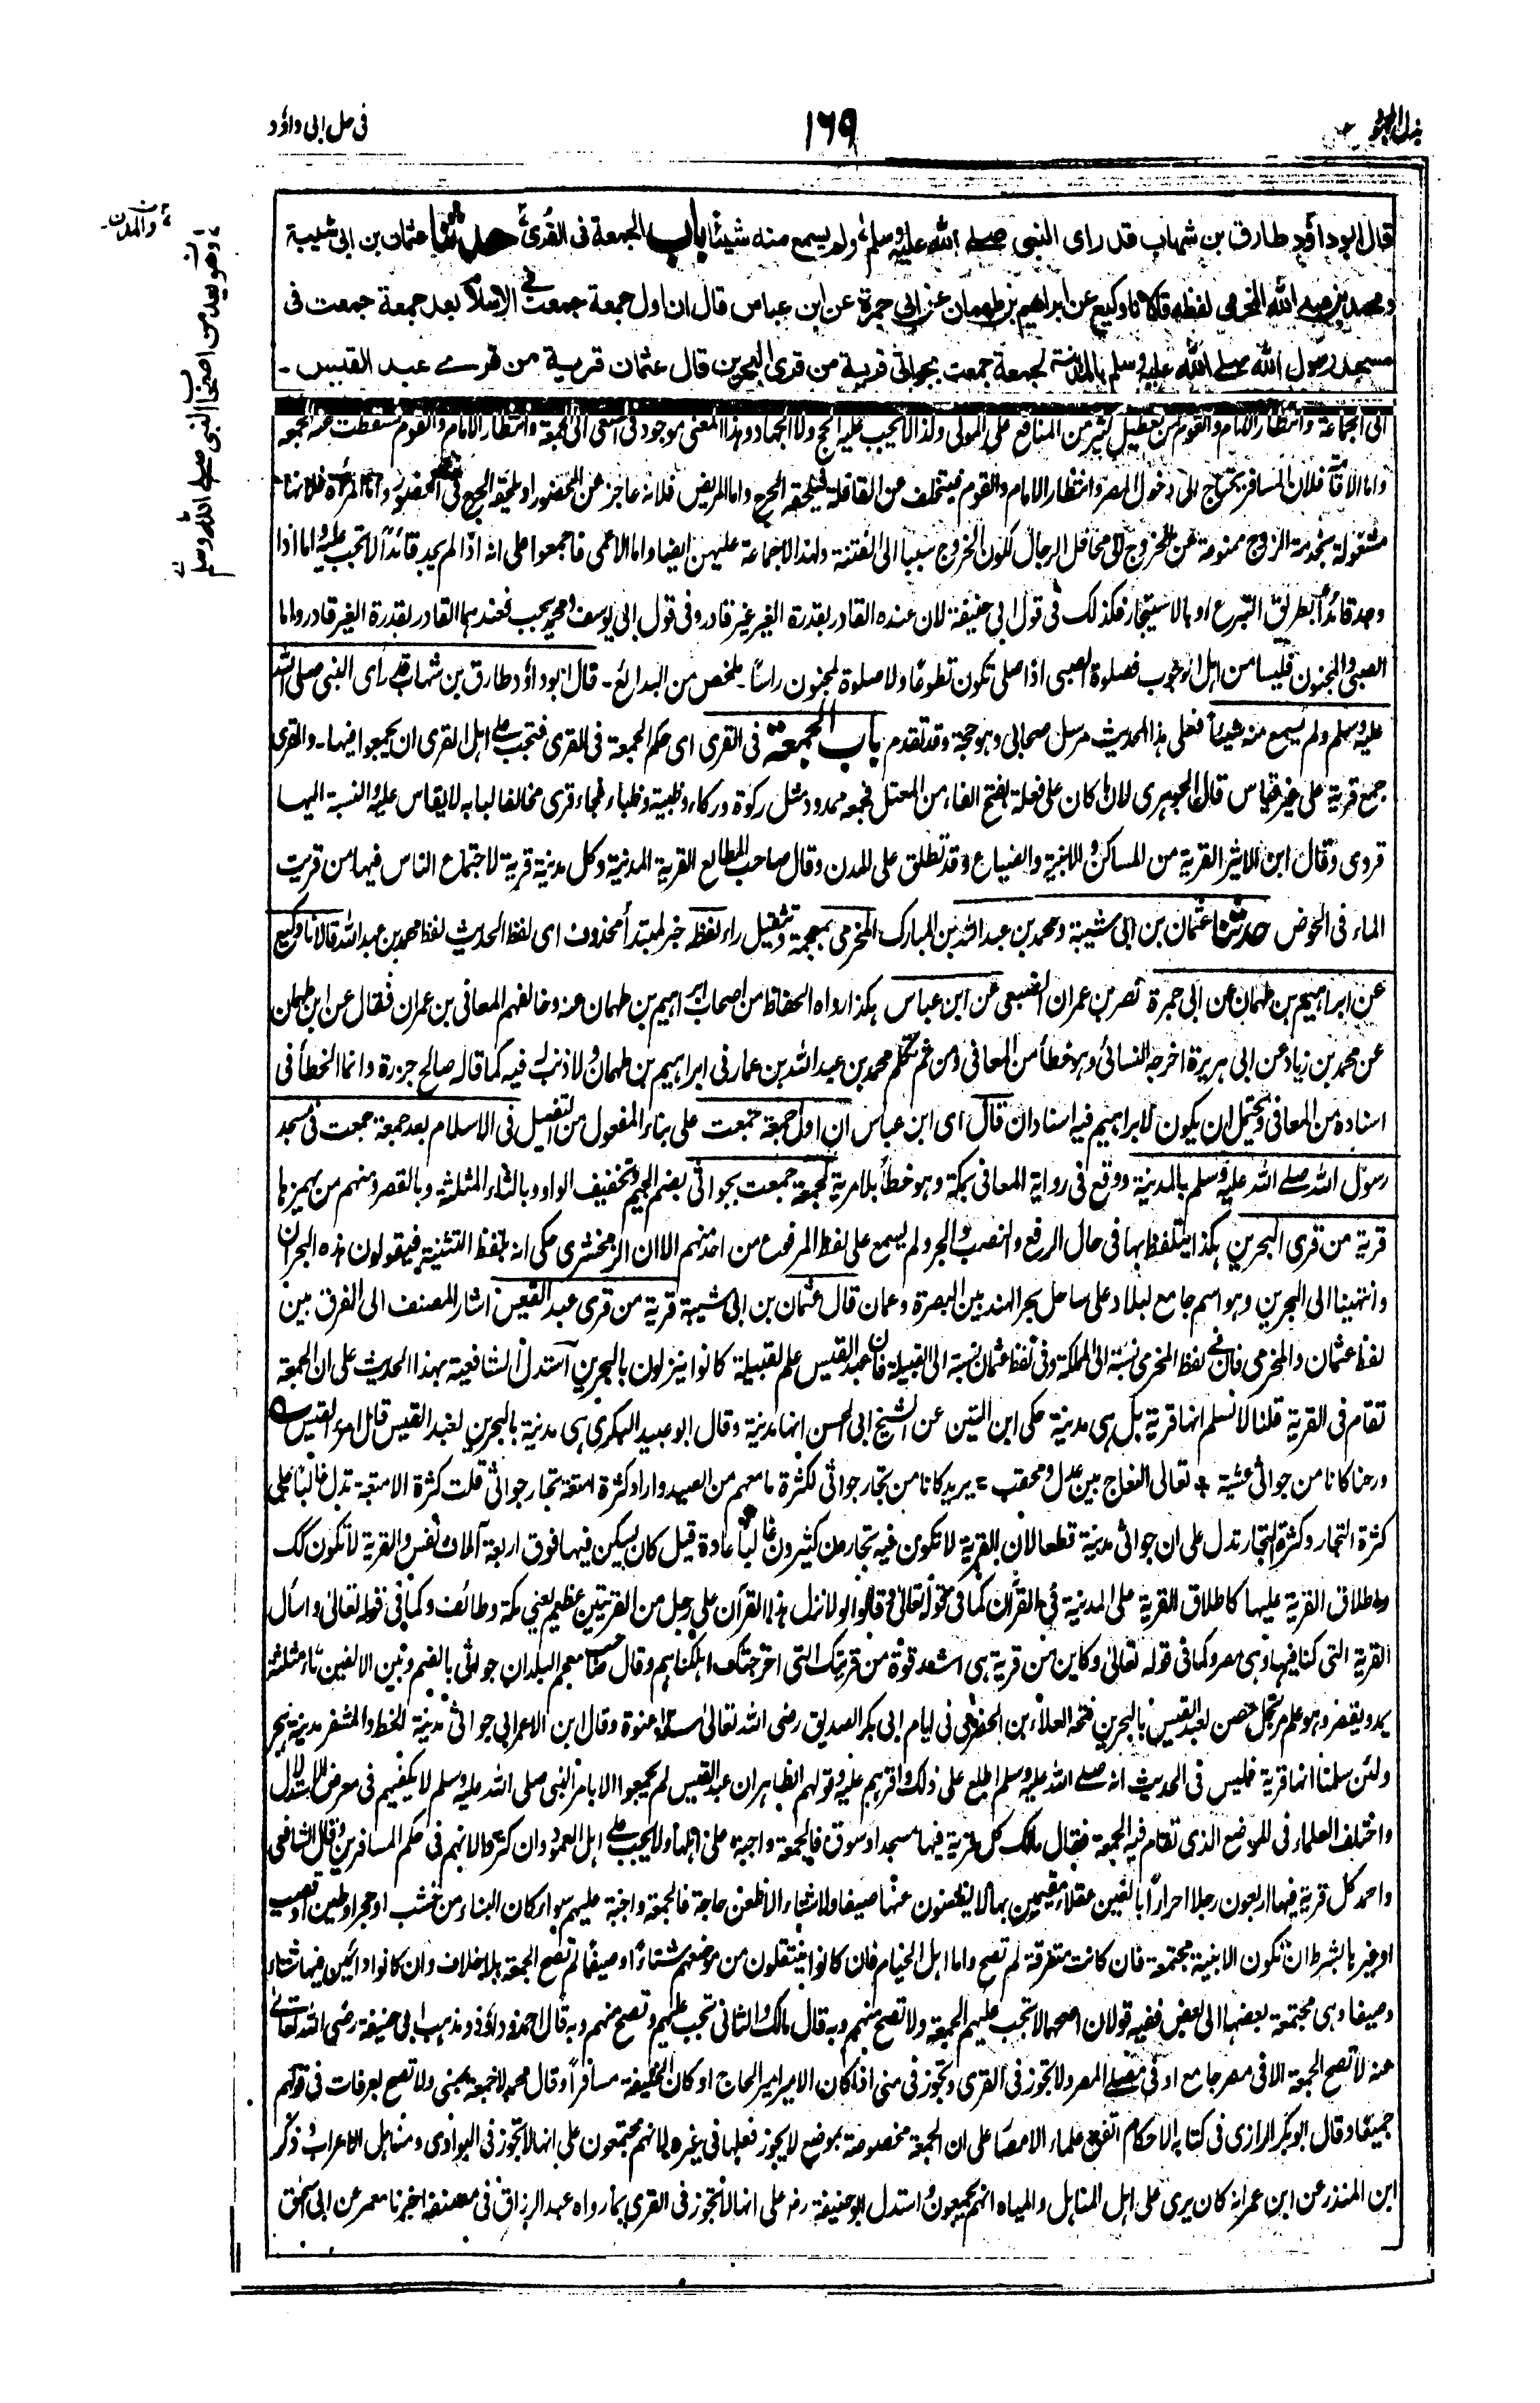 بذل المجهود
١٦٩
في حل ابی داؤد
قال ابوداؤد طارق بن شهاب قد رای النبی صلے الله علیه وسلم ولم یسمع منه شیئا باب الجمعة فی القری حدثنا عثمان بن ابی شیبة
ومحمد بن عبد الله المخرمی لفظه قالا نا وکیع عن ابراهیم بن طهمان عن ابی جمرة عن ابن عباس قال ان اول جمعة جمعت فی الاسلام بعد جمعة جمعت فی
مسجد رسول الله صلے الله علیه وسلم بالمدینة لجمعة جمعت بجواثی قریة من قری البحرین قال عثمان قریة من قرے عبد القیس -
والمدن
وهو یعد من اصحاب النبی صلے الله وسلم
الی الجماعة وانتظار الامام والقوم من تعطیل کثیر من المنافع علی المولی ولذا لا یجب علیه الحج ولا الجهاد وهذا المعنی موجود فی السعی الی الجمعة وانتظار الامام والقوم فسقطت عنه الجمعة
واما الاقامة فلان المسافر یحتاج الی دخول المصر وانتظار الامام والقوم فیتخلف عن القافلة فیلحقه الحرج واما المریض فلانه عاجز عن الحضور او یلحقه الحرج فی الحضور واما المرأة فلانها
مشغولة بخدمة الزوج ممنوعة عن الخروج الی محافل الرجال لکون الخروج سببا الی الفتنة ولهذا لا جماعة علیهن ایضا واما الاعمی فاجمعوا علی انه اذا لم یجد قائدا لا تجب علیه واما اذا
وجد قائدا بطریق التبرع او بالاستیجار فکذلک فی قول ابی حنیفة لان عنده القادر بقدرة الغیر غیر قادر وفی قول ابی یوسف ومحمد یجب فعندهما القادر بقدرة الغیر قادر واما
الصبی والمجنون فلیسا من اهل الوجوب فصلوة الصبی اذا صلی تکون تطوعا ولا صلوة لمجنون راسا - ملخص من البدائع - قال ابوداؤد طارق بن شهاب قد رأی النبی صلی الله
علیه وسلم ولم یسمع منه شیئا فعلی هذا الحدیث مرسل صحابی وهو حجة وقد تقدم باب الجمعة فی القری ای حکم الجمعة فی القری فتجب علی اهل القری ان یجمعوا فیها - والقری
جمع قریة علی غیر قیاس قال الجوهری لان ما کان علی فعلة بفتح الفاء من المعتل فجمعه ممدود مثل رکوة ورکاء وظبیة وظباء فجاء قری مخالفا لبابه لا یقاس علیه والنسبة الیها
قروی وقال ابن الاثیر القریة من المساکن والابنیة والضیاع وقد تطلق علی المدن وقال صاحب المطالع القریة المدینة وکل مدینة قریة لاجتماع الناس فیها من قریت
الماء فی الحوض حدثنا عثمان بن ابی شیبة ومحمد بن عبد الله بن المبارک المخرمی بمعجمة وتثقیل راء لفظه خبر لمبتدأ محذوف ای لفظ الحدیث لفظ محمد بن عبد الله قالا نا وکیع
عن ابراهیم بن طهمان عن ابی جمرة نصر بن عمران الضبعی عن ابن عباس هکذا رواه الحفاظ من اصحاب ابراهیم بن طهمان عنه وخالفهم المعافی بن عمران فقال عن ابن طهمان
عن محمد بن زیاد عن ابی هریرة اخرجه النسائی وهو خطأ من المعافی ومن ثم تکلم محمد بن عبد الله بن عمار فی ابراهیم بن طهمان ولا ذنب فیه کما قاله صالح جزرة وانما الخطأ فی
اسناده من المعافی ویحتمل ان یکون لابراهیم فیه اسنادان قال ای ابن عباس ان اول جمعة جمعت علی بناء المفعول من التفعیل فی الاسلام بعد جمعة جمعت فی مسجد
رسول الله صلے الله علیه وسلم بالمدینة ووقع فی روایة المعافی بمکة وهو خطأ بلا مریة لجمعة جمعت بجواثی بضم الجیم وتخفیف الواو وبالثاء المثلثة وبالقصر ومنهم من یهمزها
قریة من قری البحرین هکذا یتلفظ بها فی حال الرفع والنصب والجر ولم یسمع علی لفظ المرفوع من احد منهم الا ان الزمخشری حکی انه بلفظ التثنیة فیقولون هذه البحران
وانتهینا الی البحرین وهو اسم جامع لبلاد علی ساحل بحر الهند بین البصرة وعمان قال عثمان بن ابی شیبة قریة من قری عبد القیس اشار المصنف الی الفرق بین
لفظ عثمان والمخرمی فان فی لفظ المخرمی نسبة الی المملکة وفی لفظ عثمان نسبة الی القبیلة فان عبد القیس علم لقبیلة کانوا ینزلون بالبحرین استدل الشافعیة بهذا الحدیث علی ان الجمعة
تقام فی القریة قلنا لا نسلم انها قریة بل هی مدینة حکی ابن التین عن الشیخ ابی الحسن انها مدینة وقال ابو عبید البکری هی مدینة بالبحرین لعبد القیس قال امرء القیس
ورحنا کانا من جواثی عشیة + تعالی النعاج بین عدل ومحقب = یرید کانا من تجار جواثی لکثرة ما معهم من الصید واراد کثرة امتعة تجار جواثی قلت کثرة الامتعة تدل غالبا علی
کثرة التجار وکثرة التجار تدل علی ان جواثی مدینة قطعا لان القریة لا تکون فیه تجار کثیرون غالبا عادة قیل کان یسکن فیها فوق اربعة آلاف نفس والقریة لا تکون کک
واطلاق القریة علیها کاطلاق القریة علی المدینة فی القرآن کما فی قوله تعالی وقالوا لولا نزل هذا القرآن علی رجل من القریتین عظیم یعنی مکة وطائف وکما فی قوله تعالی واسأل
القریة التی کنا فیها وهی مصر وکما فی قوله تعالی وکاین من قریة هی اشد قوة من قریتک التی اخرجتک اهلکناهم وقال صاحب معجم البلدان جواثی بالضم وبین الالفین ثاء مثلثة
یمد ویقصر وهو علم مرتجل حصن لعبد القیس بالبحرین فتحه العلاء بن الحضرمی فی ایام ابی بکر الصدیق رضی الله تعالی عنوة وقال ابن الاعرابی جواثی مدینة الخط والمشقر مدینة هجر
ولئن سلمنا انها قریة فلیس فی الحدیث انه صلے الله علیه وسلم اطلع علی ذلک واقرهم علیه وقولهم الظاهر ان عبد القیس لم یجمعوا الا بامر النبی صلی الله علیه وسلم لا یکفیهم فی معرض الاستدلال
واختلف العلماء فی الموضع الذی تقام فیه الجمعة فقال مالک کل قریة فیها مسجد او سوق فالجمعة واجبة علی اهلها ولا یجب علی اهل العمود وان کثروا لانهم فی حکم المسافرین وقال الشافعی
واحمد کل قریة فیها اربعون رجلا احرارا بالغین عقلاء مقیمین بها لا یظعنون عنها صیفا ولا شتاء الا ظعن حاجة فالجمعة واجبة علیهم سواء کان البناء من خشب او حجر او طین او قصب
او غیرها بشرط ان تکون الابنیة مجتمعة فان کانت متفرقة لم تصح واما اهل الخیام فان کانوا ینتقلون من موضعهم شتاء او صیفا لم تصح الجمعة بلا خلاف وان کانوا دائمین فیها شتاء
وصیفا وهی مجتمعة بعضها الی بعض ففیه قولان اصحهما لا تجب علیهم الجمعة ولا تصح منهم وبه قال مالک والثانی تجب علیهم وتصح منهم وبه قال احمد وداؤد ومذهب ابی حنیفة رضی الله تعالی
عنه لا تصح الجمعة الا فی مصر جامع او فی مصلے المصر ولا تجوز فی القری وتجوز فی منی اذا کان الامیر امیر الحاج او کان الخلیفة مسافرا وقال محمد لا جمعة بمنی ولا تصح بعرفات فی قولهم
جمیعا وقال ابوبکر الرازی فی کتابه الاحکام اتفق علماء الامصار علی ان الجمعة مخصوصة بموضع لا یجوز فعلها فی غیره لانهم مجتمعون علی انها لا تجوز فی البوادی ومناهل الاعراب وذکر
ابن المنذر عن ابن عمر انه کان یری علی اهل المناهل والمیاه انهم یجمعون واستدل ابو حنیفة رضه علی انها لا تجوز فی القری بما رواه عبد الرزاق فی مصنفه اخبرنا معمر عن ابی اسحق